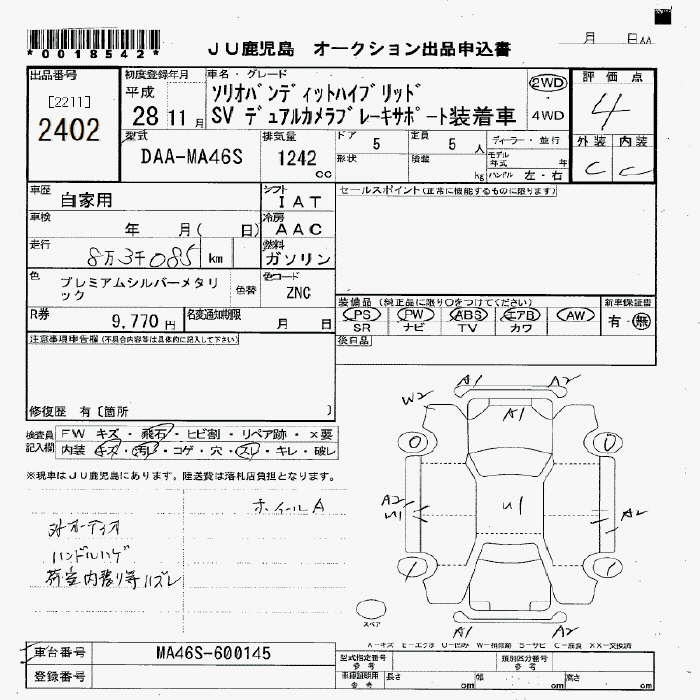 *0018542*
JU鹿児島 オークション出品申込書
月 日AA
出品番号
[2211]
2402
初度登録年月
平成
28 11 月
車名・グレード
ソリオバンディットハイブリッド
SV デュアルカメラブレーキサポート装着車
2WD
4WD
評価点
4
外装 内装
C C
型式
DAA-MA46S
排気量
1242
cc
ドア 5
形状
定員 5 人
積載 kg
ディーラー・並行
モデル年式 年
ハンドル 左・右
車歴
自家用
シフト
IAT
車検
年 月( 日)
冷房
AAC
走行
8万3千085 km
燃料
ガソリン
色
プレミアムシルバーメタリック
色替
色コード
ZNC
R券
9,770 円
名変通知期限
月 日
セールスポイント(正常に機能するものに限ります)
装備品 (純正品に限り○をつけてください)
PS PW ABS エアB AW
SR ナビ TV カワ
新車保証書
有・無
後日品
注意事項申告欄(不具合内容等は具体的に記入して下さい)
修復歴 有〔箇所 〕
検査員記入欄
FW キズ・飛石・ヒビ割・リペア跡・×要
内装 キズ・汚れ・コゲ・穴・スレ・キレ・破レ
※現車はJU鹿児島にあります。陸送費は落札店負担となります。
ホイールA
外オーディオ
ハンドルハゲ
荷室内張り等ハズレ
A1 A2
W2
A1
A2
U1
U1
A2
A1 A2
スペア
A-キズ E-エクボ U-凹み W-補修跡 S-サビ C-腐食 XX-交換済
車台番号
MA46S-600145
登録番号
型式指定番号
参考
類別区分番号
参考
車検証明用
参考
長さ cm
幅 cm
高さ cm